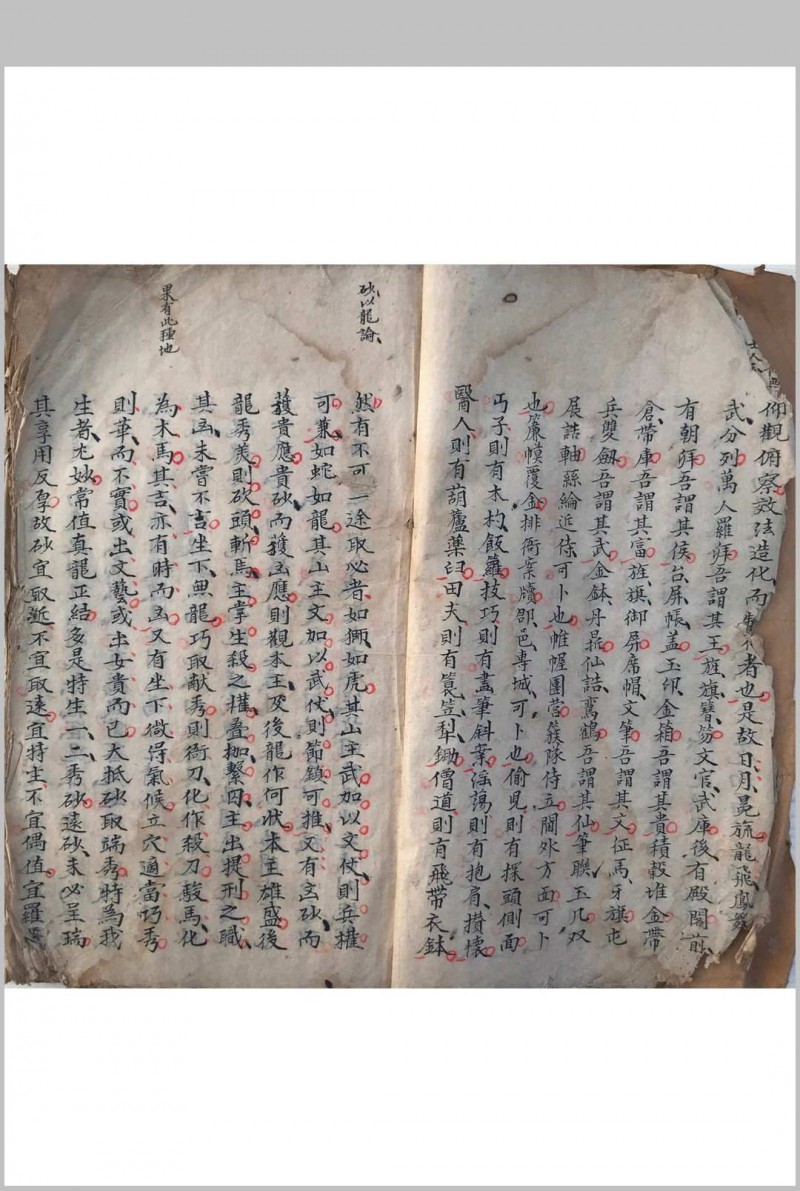 仰觀俯察效法造化而
者也是故日月冕旒龍飛鳳
武分列萬人羅拜吾謂其王旌旗簪笏文官武庫後有殿閣前
有朝拜吾謂其侯台屏帳蓋玉印金箱吾謂其貴積穀堆金帶
倉帶庫吾謂其富旌旗御屏席帽文筆吾謂其文征馬牙旗屯
兵雙劔吾謂其武金鉢丹鼎仙誥鸞鶴吾謂其仙筆聯玉几双
展誥軸絲綸近侍可卜也帷幄團營簇隊侍立閫外方面可卜
也簾幙覆金排衙案牘郡邑專城可卜也偷見則有探頭側面
丐子則有木杓飯籮技巧則有畫筆斜案淫蕩則有抱肩攢懷
醫人則有葫蘆藥臼田夫則有簑笠犁鋤僧道則有飛帶衣鉢
砂以龍論
然有不可一途取必者如獅如虎其山主武加以文仗則兵權
可兼如蛇如龍其山主文加以武仗則節鎮可推又有凶砂而
獲貴應貴砂而獲凶應則觀本主及後龍作何狀本主雄盛後
龍秀美則砍頭斬馬主掌生殺之權叠枷繫囚主出提刑之職
其凶未嘗不吉坐下無龍巧取献秀則衙刀化作殺刀駿馬化
果有此種地
為木馬其吉亦有時而凶又有坐下微得氣候立穴適當巧秀
則華而不實或出文藝或出女貴而已大抵砂取端秀時為我
生者尤妙常值真龍正結多是特生一二秀砂遠砂未必呈瑞
其享用反厚故砂宜取近不宜取遠宜特生不宜偶值宜羅